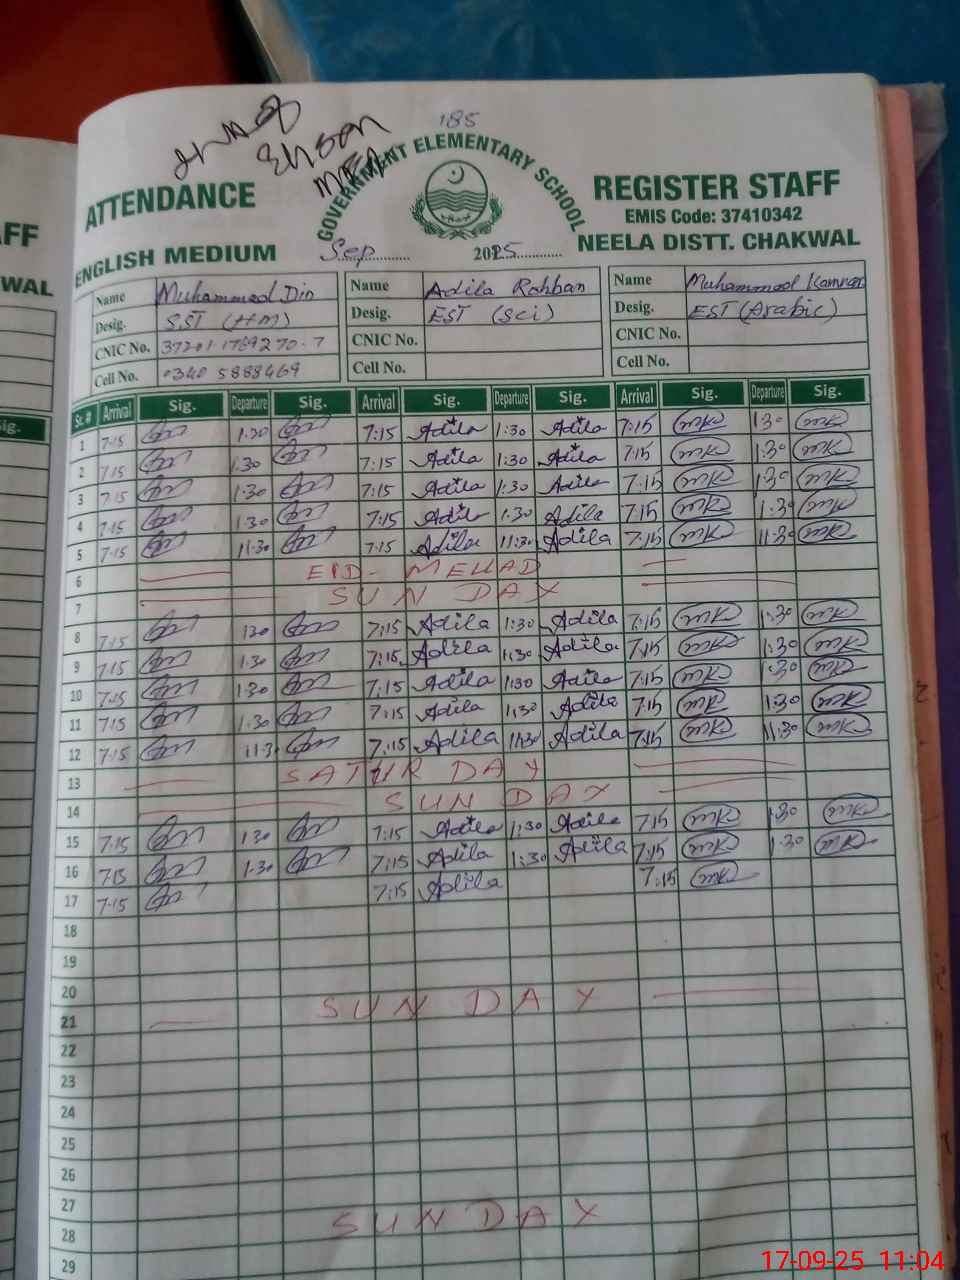 185
Ehsan
GOVERNMENT ELEMENTARY SCHOOL
ATTENDANCE
REGISTER STAFF
EMIS Code: 37410342
ENGLISH MEDIUM
Sep 2025
NEELA DISTT. CHAKWAL
AFF
WAL
Sig.
Name Muhammad Din Name Adila Rahban Name Muhammad Kamran
Desig. SST (HM) Desig. EST (Sci) Desig. EST (Arabic)
CNIC No. 37201-1769270-7 CNIC No. CNIC No.
Cell No. 0340 5888469 Cell No. Cell No.
Sr. # Arrival Sig. Departure Sig. Arrival Sig. Departure Sig. Arrival Sig. Departure Sig.
1 7:15 1:30 7:15 Adila 1:30 Adila 7:15 MK 1:30 MK
2 7:15 1:30 7:15 Adila 1:30 Adila 7:15 MK 1:30 MK
3 7:15 1:30 7:15 Adila 1:30 Adila 7:15 MK 1:30 MK
4 7:15 1:30 7:15 Adila 1:30 Adila 7:15 MK 1:30 MK
5 7:15 11:30 7:15 Adila 11:30 Adila 7:15 MK 11:30 MK
6 EID- MELLAD
7 SUN DAY
8 7:15 1:30 7:15 Adila 1:30 Adila 7:15 MK 1:30 MK
9 7:15 1:30 7:15 Adila 1:30 Adila 7:15 MK 1:30 MK
10 7:15 1:30 7:15 Adila 1:30 Adila 7:15 MK 1:30 MK
11 7:15 1:30 7:15 Adila 1:30 Adila 7:15 MK 1:30 MK
12 7:15 11:3 7:15 Adila 11:30 Adila 7:15 MK 11:30 MK
13 SATUR DAY
14 SUN DAY
15 7:15 1:30 7:15 Adila 1:30 Adila 7:15 MK 1:30 MK
16 7:15 1:30 7:15 Adila 1:30 Adila 7:15 MK 1:30 MK
17 7:15 7:15 Adila 7:15 MK
18
19
20
21 SUN DAY
22
23
24
25
26
27
28 SUN DAY
29
17-09-25 11:04